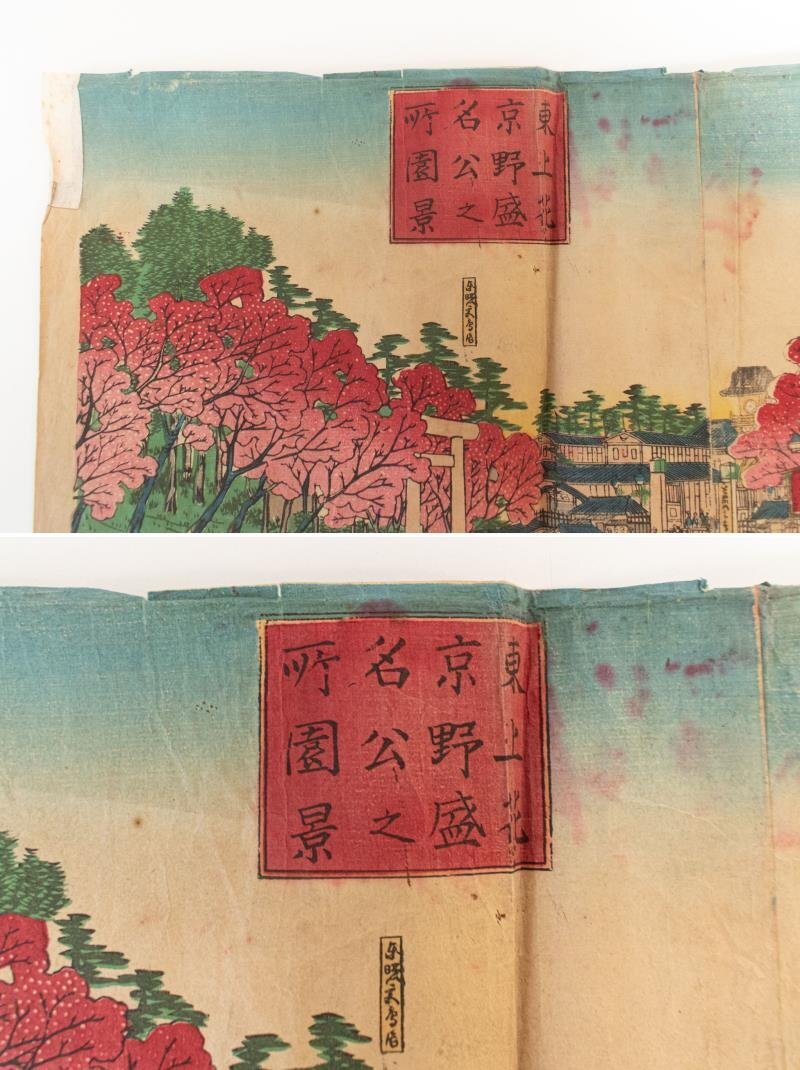 東京名所
上野公園
花盛之景
東京名所
上野公園
花盛之景